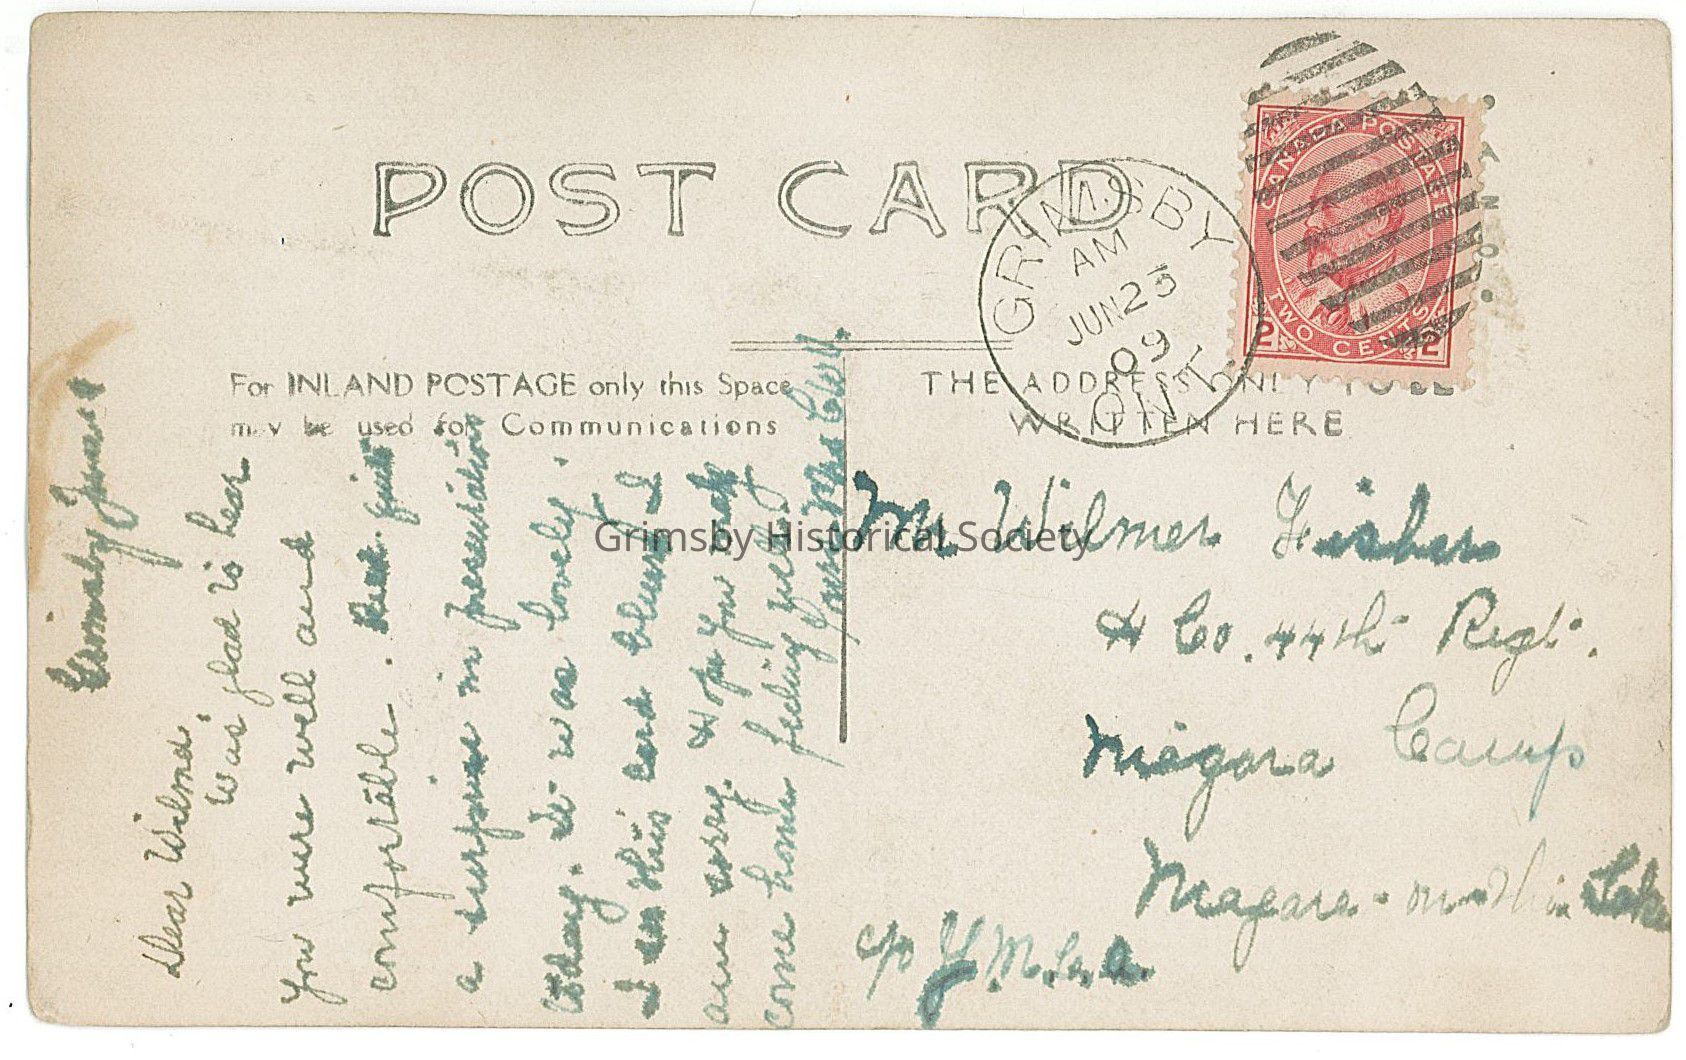 POST CARD
GRIMSBY
AM
JUN 23
09
ONT
CANADA POSTAGE
2 TWO CENTS 2
CANADA
For INLAND POSTAGE only this Space
may be used for Communications
THE ADDRESS ONLY TO BE
WRITTEN HERE
Grimsby June
Dear Wilmer.
Was glad to hear
you were well and
comfortable.
a surprise in presentation
today. It was lovely.
I this card blurred I
am sorry. Hope you
come home feeling
Mr Wilmer Fisher
Co. 44th Regt.
Niagara Camp
Niagara-on-the Lake
c/o Y.M.C.A.
Grimsby Historical Society